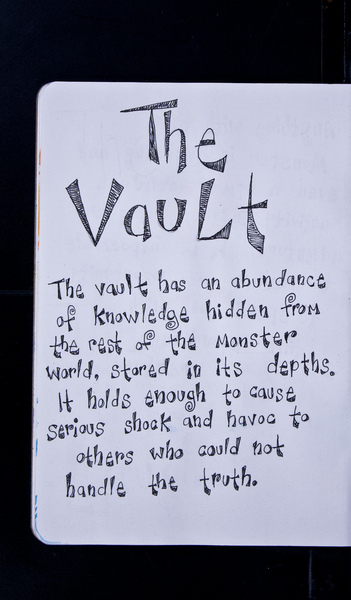 The
Vault
The vault has an abundance
of knowledge hidden from
the rest of the Monster
world, stored in its depths.
It holds enough to cause
serious shock and havoc to
others who could not
handle the truth.